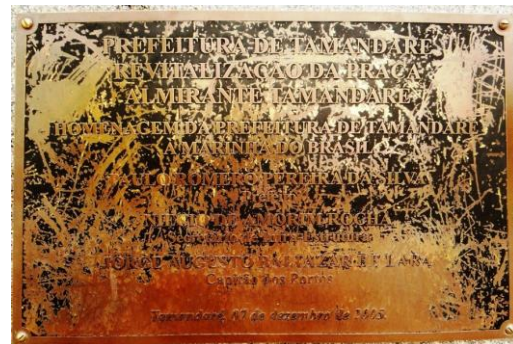 PREFEITURA DE TAMANDARÉ
REVITALIZAÇÃO DA PRAÇA
ALMIRANTE TAMANDARÉ
HOMENAGEM DA PREFEITURA DE TAMANDARÉ
À MARINHA DO BRASIL
PAULO ROMERO PEREIRA DA SILVA
Prefeito
DE AMORIM ROCHA
JORGE AUGUSTO
Capitão dos Portos
Tamandaré, 07 de dezembro de